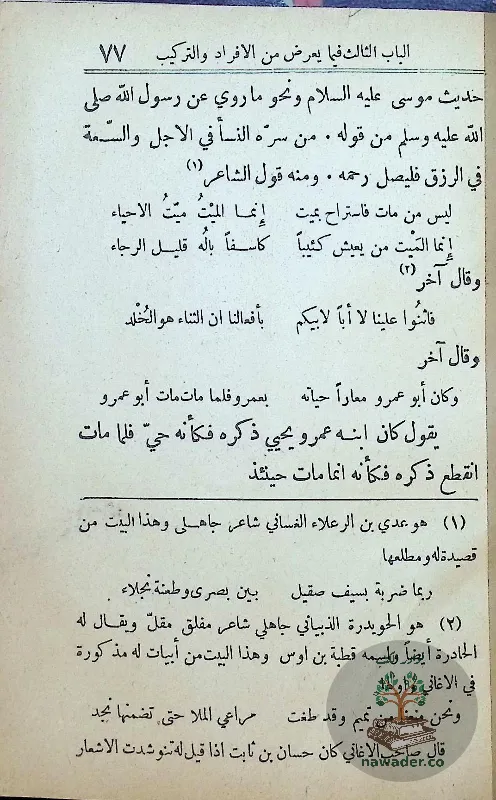 الباب الثالث فيما يعرض من الافراد والتركيب ٧٧
حديث موسى عليه السلام ونحو ما روي عن رسول الله صلى
الله عليه وسلم من قوله . من سرّه النسأ في الاجل والسّعة
في الرزق فليصل رحمه . ومنه قول الشاعر (١)
ليس من مات فاستراح بميت إنمـا الميْتُ ميّتُ الاحياء
إنما المَيْت من يعيش كئيباً كاسفـاً بالُه قليـل الرجاء
وقال آخر (٢)
فاثنُوا علينا لا أباً لابيكم بأفعالنا ان الثناء هو الخُلد
وقال آخر
وكان أبو عمرو معاراً حياته بعمرو فلما مات مات أبو عمرو
يقول كان ابنـه عمرو يحيي ذكره فكأنه حيّ فلما مات
انقطع ذكره فكأنه انما مات حينئذ
(١) هو عدي بن الرعلاء الغساني شاعر جاهلى وهذا البيت من
قصيدة له ومطلعها
ربما ضربة بسيف صقيل بين بصرى وطعنة نجلاء
(٢) هو الحويدرة الذبياني جاهلي شاعر مفلق مقلّ ويقال له
الحادرة أيضاً واسمه قطبة بن اوس وهذا البيت من أبيات له مذكورة
في الاغاني
ونحن من تميم وقد طغت مراعي الملا حتى تضمنها نجد
قال صاحب الاغاني كان حسان بن ثابت اذا قيل له تنوشدت الاشعار
نوادر
nawader.co